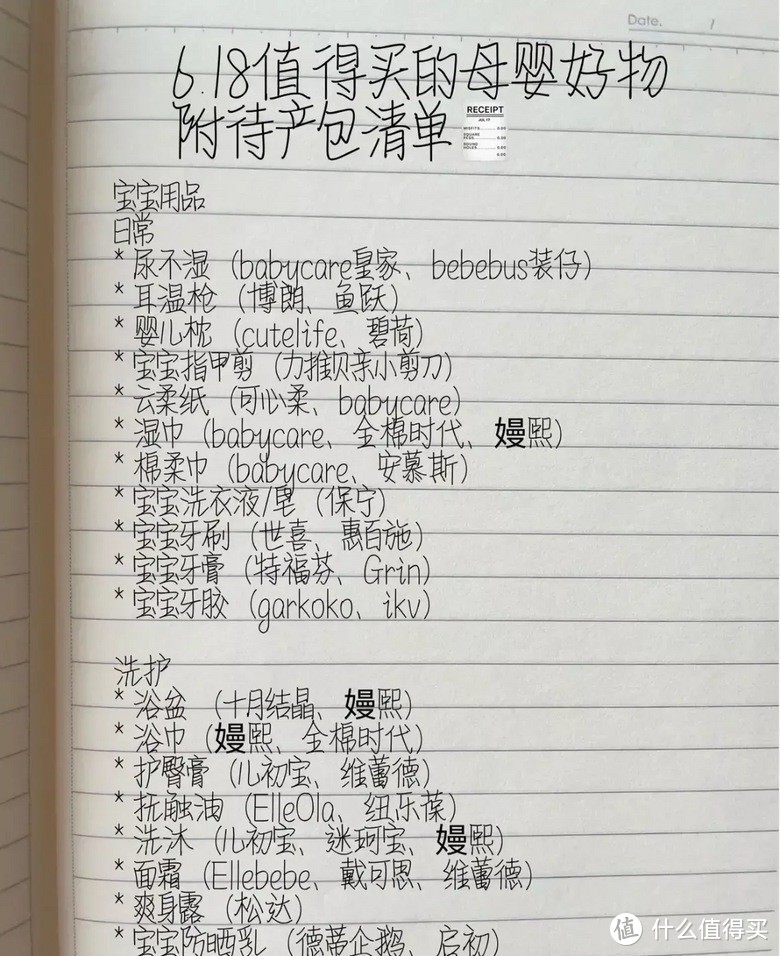 Date. /
6.18值得买的母婴好物
附待产包清单
RECEIPT
宝宝用品
日常
* 尿不湿（babycare皇家、bebebus装仔）
* 耳温枪（博朗、鱼跃）
* 婴儿枕（cutelife、碧荷）
* 宝宝指甲剪（力推贝亲小剪刀）
* 云柔纸（可心柔、babycare）
* 湿巾（babycare、全棉时代、嫚熙）
* 棉柔巾（babycare、安慕斯）
* 宝宝洗衣液/皂（保宁）
* 宝宝牙刷（世喜、惠百施）
* 宝宝牙膏（特福芬、Grin）
* 宝宝牙胶（garkoko、ikv）
洗护
* 浴盆（十月结晶、嫚熙）
* 浴巾（嫚熙、全棉时代）
* 护臀膏（儿初宝、维蕾德）
* 抚触油（ElleOla、纽乐葆）
* 洗沐（儿初宝、迷珂宝、嫚熙）
* 面霜（Ellebebe、戴可思、维蕾德）
* 爽身露（松达）
* 宝宝防晒乳（德蒂企鹅、启初）
值 什么值得买